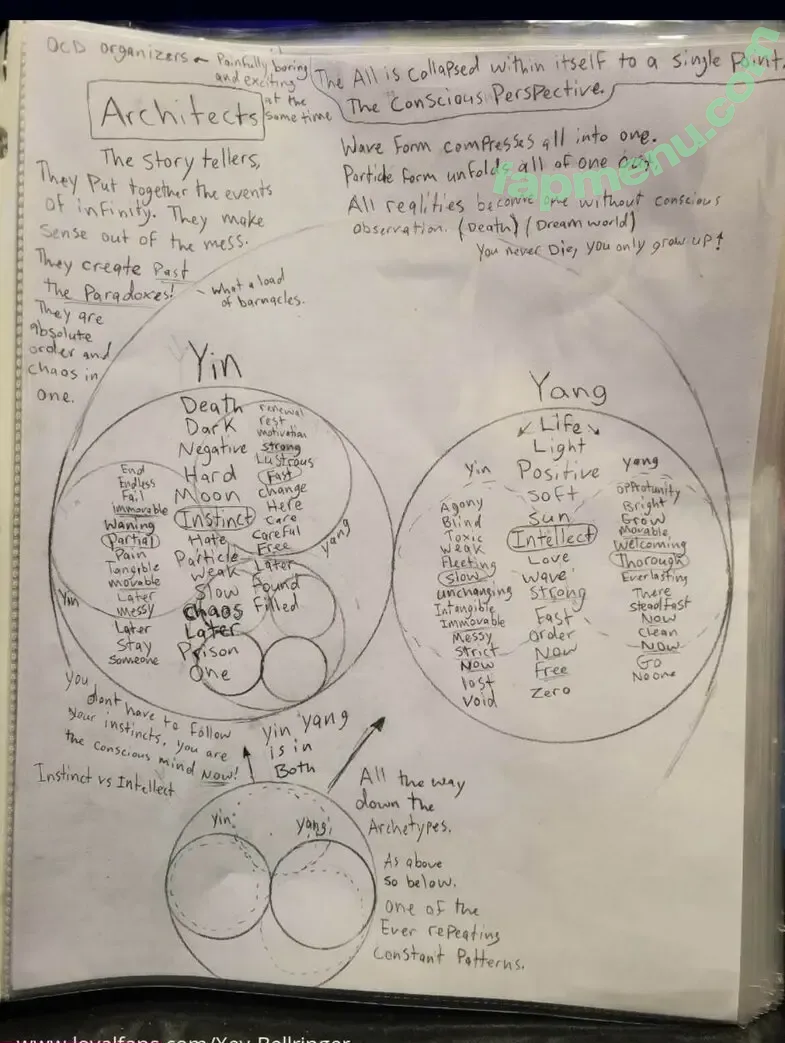 OCD organizers ← Painfully boring
and exciting
at the
same time
Architects
The story tellers,
They Put together the events
of infinity. They make
Sense out of the mess.
They create Past
the Paradoxes!
- what a load
of barnacles.
They are
absolute
order and
chaos in
one.
The All is collapsed within itself to a single Point.
The Conscious Perspective.
Wave Form compresses all into one.
Particle form unfolds all of one
All realities become one without conscious
observation. (Death) (Dream world)
You never Die, you only grow up!
fapmenu.com
Yin
Death
Dark
Negative
Hard
Moon
Instinct
Hate
Particle
weak
Slow
Chaos
Later
Prison
One
renewal
rest
motivation
strong
Lustrous
Fast
change
Here
care
careful
Free
Later
Found
Filled
yang
End
Endless
Fail
immovable
Waning
Partial
Pain
Tangible
movable
Later
messy
Later
Stay
Someone
Yin
Yang
Life
Light
Positive
Soft
Sun
Intellect
Love
Wave
Strong
Fast
order
Now
Free
Zero
yin
Agony
Blind
Toxic
weak
Fleeting
Slow
unchanging
Intangible
Immovable
Messy
Strict
Now
lost
Void
yang
opportunity
Bright
Grow
Movable
Welcoming
Thorough
Everlasting
There
steadfast
Now
Clean
Now
Go
No one
you
dont have to follow
your instincts, you are
the conscious mind Now!
Instinct vs Intellect
yin yang
is in
Both
All the way
down the
Archetypes.
As above
so below.
one of the
Ever repeating
Constant Patterns.
yin
yang
www.loyalfans.com/Xev Bellringer